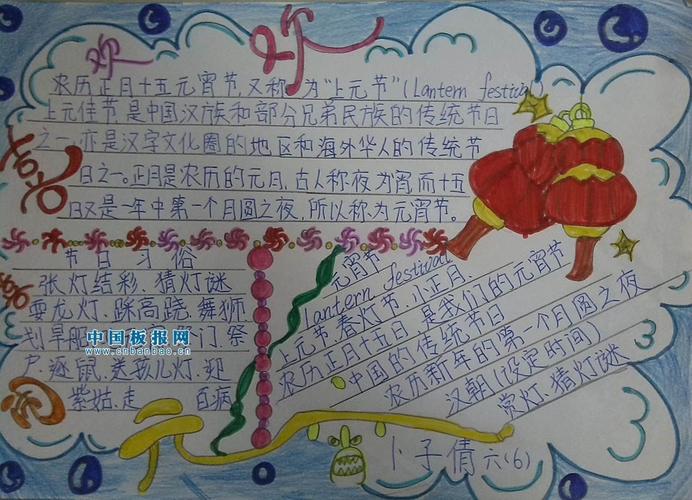 欢
农历正月十五元宵节,又称为"上元节"(Lantern festival)
上元佳节是中国汉族和部分兄弟民族的传统节日
之一,亦是汉字文化圈的地区和海外华人的传统节
日之一。正月是农历的元月,古人称夜为宵而十五
日又是一年中第一个月圆之夜,所以称为元宵节。
节日习俗
张灯结彩、猜灯谜
耍龙灯、踩高跷、舞狮
划旱船 门、祭
户、逐鼠、孩儿灯、迎
紫姑、走 百病
元宵节
lantern festival
上元节、春灯节、小正月、
农历正月十五日,是我们的元宵节
中国的传统节日
农历新年的第一个月圆之夜
汉朝(设定时间)
赏灯、猜灯谜
卜子倩 六(6)
中国板报网
www.cnbanbao.cn